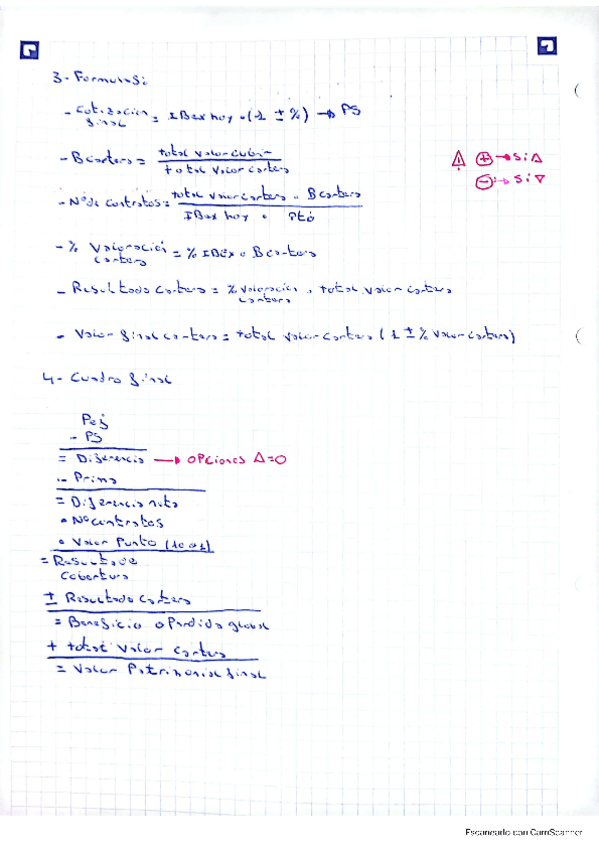 3- Formulas:
- Cotización final = IBex hoy · (1 ± %) → PS
- B cartera = total valor cubrir / total valor cartera
⚠ ⊕ → si Δ
⊖ → si ∇
- Nº de contratos = total valor cartera · B cartera / IBex hoy · Pto
- % Valoración cartera = % IBex · B cartera
- Resultado Cartera = % valoración cartera · total valor cartera
- Valor final cartera = total valor cartera (1 ± % valor cartera)
4- Cuadro final
Pej
- PS
= Diferencia → OPCiones Δ=0
- Prima
= Diferencia neta
· Nº contratos
· Valor Punto (10 o 1)
= Resultado Cobertura
± Resultado Cartera
= Beneficio o Perdida global
+ total valor cartera
= Valor Patrimonial final
Escaneado con CamScanner